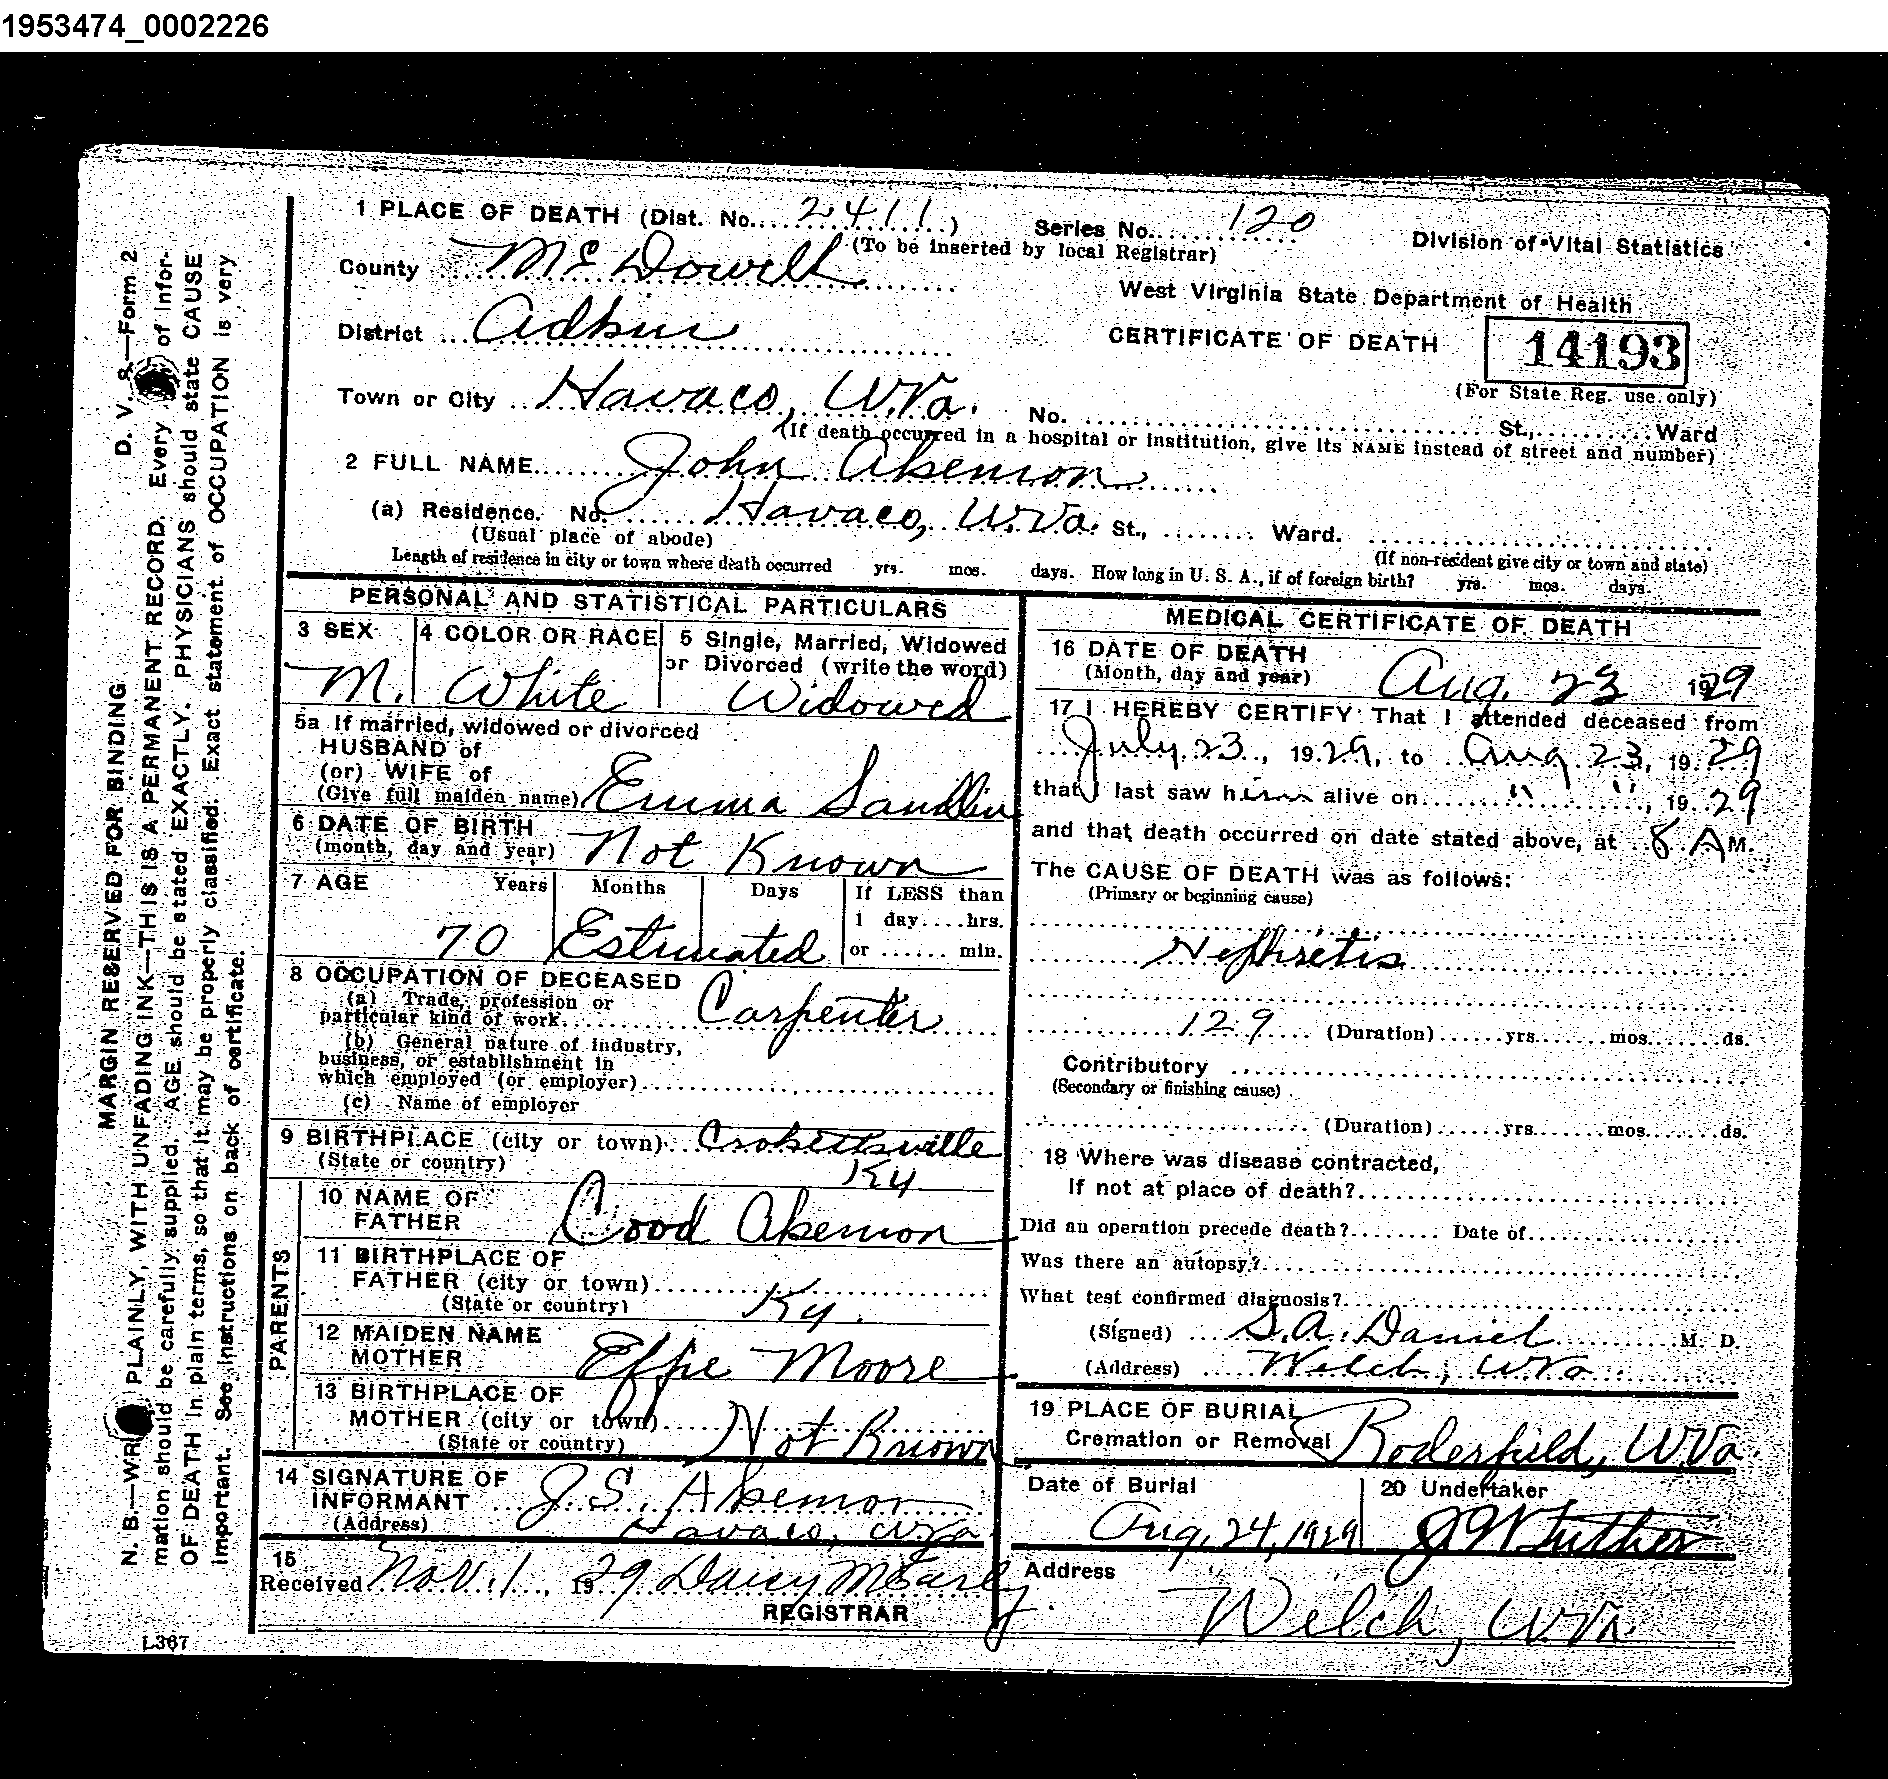 1953474_0002226
1 PLACE OF DEATH (Dist. No. 2411)
Series No. 120
(To be inserted by local Registrar)
Division of Vital Statistics
County Mc Dowell
West Virginia State Department of Health
District Adkin
CERTIFICATE OF DEATH
14193
(For State Reg. use only)
Town or City Havaco, W.Va.
No. St., Ward
(If death occurred in a hospital or institution, give its NAME instead of street and number)
2 FULL NAME John Akemon
(a) Residence. No. Havaco, W.Va. St., Ward.
(Usual place of abode)
(If non-resident give city or town and state)
Length of residence in city or town where death occurred yrs. mos. days. How long in U. S. A., if of foreign birth? yrs. mos. days.
PERSONAL AND STATISTICAL PARTICULARS
3 SEX
M.
4 COLOR OR RACE
White
5 Single, Married, Widowed
or Divorced (write the word)
Widowed
5a If married, widowed or divorced
HUSBAND of
(or) WIFE of
(Give full maiden name) Emma Sandlin
6 DATE OF BIRTH
(month, day and year) Not Known
7 AGE Years Months Days
If LESS than
1 day....hrs.
or ...... min.
70 Estimated
8 OCCUPATION OF DECEASED
(a) Trade, profession or
particular kind of work Carpenter
(b) General nature of industry,
business, or establishment in
which employed (or employer)
(c) Name of employer
9 BIRTHPLACE (city or town) Crokettsville
(State or country) Ky
PARENTS
10 NAME OF
FATHER Cood Akemon
11 BIRTHPLACE OF
FATHER (city or town)
(State or country) Ky.
12 MAIDEN NAME
MOTHER Effie Moore
13 BIRTHPLACE OF
MOTHER (city or town)
(State or country) Not Known
14 SIGNATURE OF
INFORMANT J. S. Akemon
(Address) Havaco, W Va
15
Received Nov. 1, 1929 Daisy McEarly
REGISTRAR
MEDICAL CERTIFICATE OF DEATH
16 DATE OF DEATH
(Month, day and year) Aug. 23 1929
17 I HEREBY CERTIFY That I attended deceased from
July 23, 1929, to Aug 23, 1929
that I last saw him alive on " ", 1929
and that death occurred on date stated above, at 8 AM.
The CAUSE OF DEATH was as follows:
(Primary or beginning cause)
Nephretis
129 (Duration) yrs. mos. ds.
Contributory
(Secondary or finishing cause)
(Duration) yrs. mos. ds.
18 Where was disease contracted,
If not at place of death?
Did an operation precede death? Date of
Was there an autopsy?
What test confirmed diagnosis?
(Signed) S.A. Daniel M. D.
(Address) Welch, W Va
19 PLACE OF BURIAL
Cremation or Removal Roderfield, W.Va.
Date of Burial
Aug. 24, 1929
20 Undertaker
Address
Welch, W.Va.
D. V. S.—Form 2
MARGIN RESERVED FOR BINDING
N. B.—WRITE PLAINLY, WITH UNFADING INK—THIS IS A PERMANENT RECORD. Every of infor-
mation should be carefully supplied. AGE should be stated EXACTLY. PHYSICIANS should state CAUSE
OF DEATH in plain terms, so that it may be properly classified. Exact statement of OCCUPATION is very
important. See instructions on back of certificate.
L367